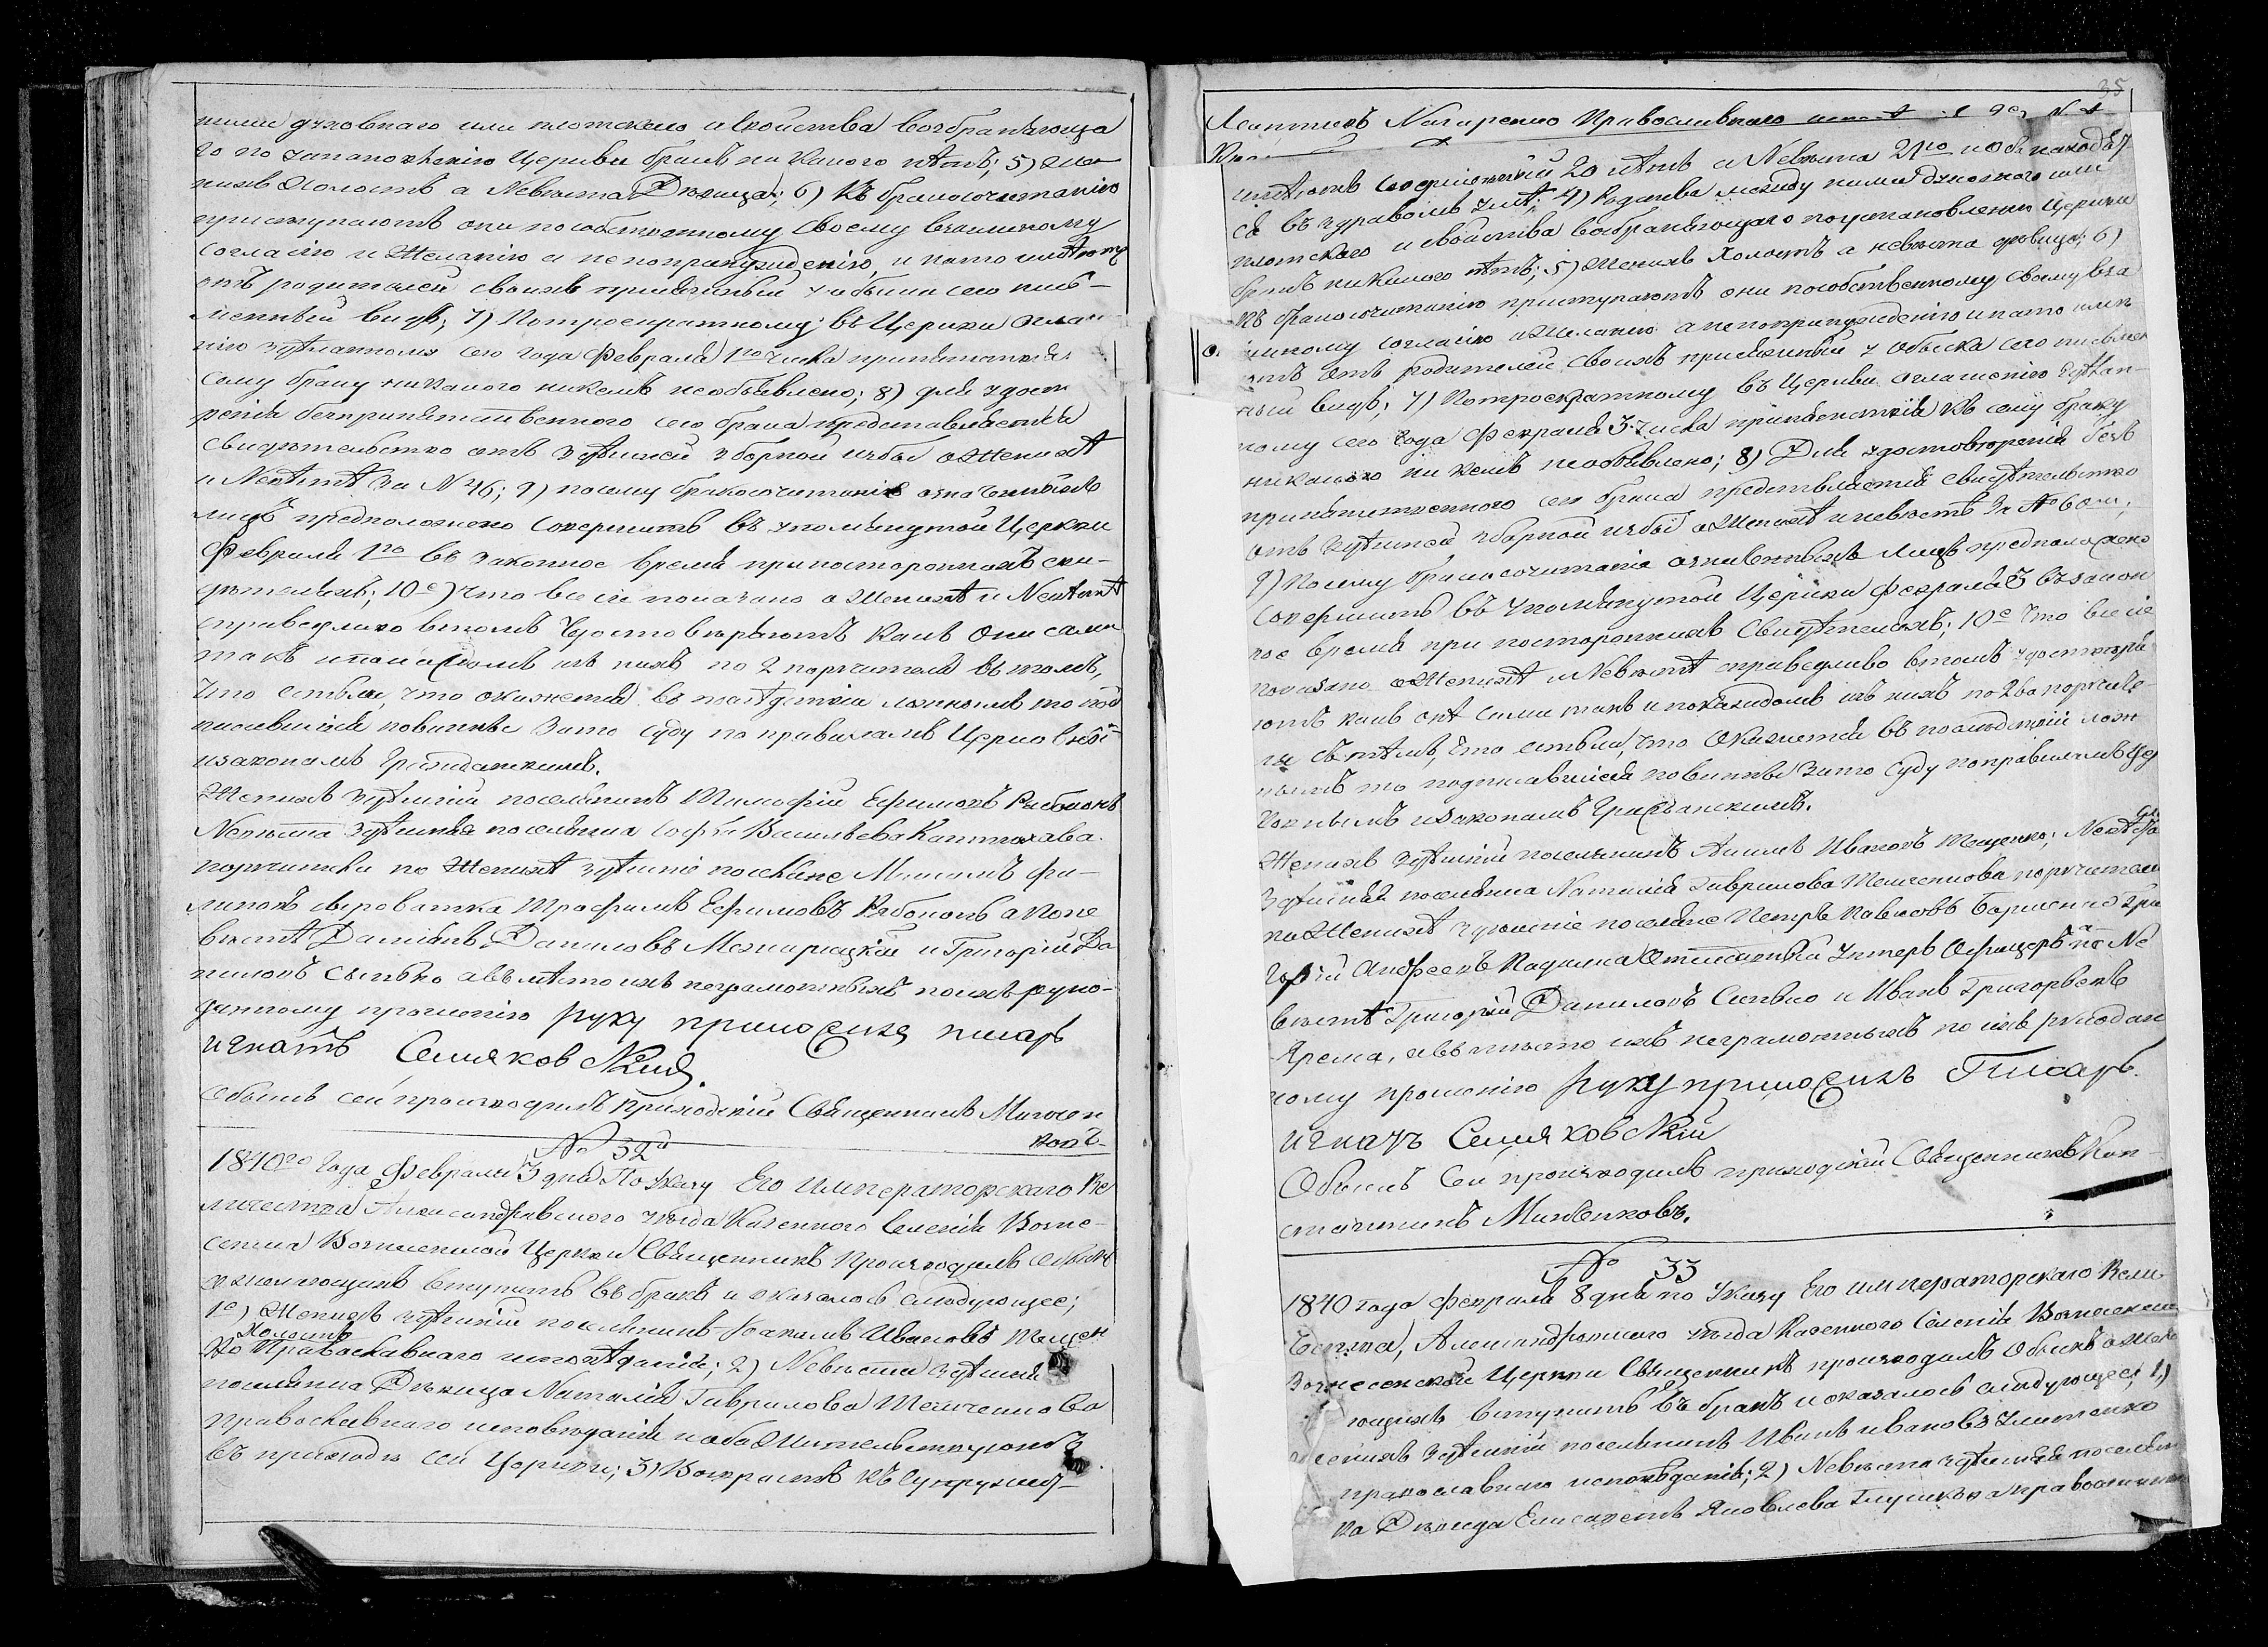 ними духовнаго или плотскаго и свойства возбраняюща
го по установленію Церкви бракъ никакого нѣтъ; 5) Же
нихъ Холостъ а Невѣста Дѣвица; 6) Къ бракосочетанію
приступаютъ они по собственному своему взаимному
согласію и Желанію и не по принужденію, и на то имѣютъ
отъ родителей своихъ приличный у обыска сего пись-
менный видъ; 7) По троекратному въ Церкви оглаше
нію здѣланному сего года Февраля 1го числа препятствія
сему браку никакого никемъ необъявлено; 8) для удосто
ренія безпрепятственного сего брака представляется
Свидѣтельство отъ здѣшней зборной избы о Женихѣ
и Невѣстѣ За № 46; 9) посему бракосочетаніе означенныхъ
лицъ предположено Совершить въ упомянутой Церкви
Февраля 1го въ законное время при постороннихъ сви-
дѣтеляхъ; 10е) Что все сіе показано о Женихѣ и Невѣстѣ
справедливо втомъ удостовѣряютъ какъ Они сами
такъ и по каждомъ изъ нихъ по 2 поручителя въ томъ,
что естьли, что окажется въ послѣдствіи ложнымъ то под
писавшіися повинны Зато суду по правиламъ Церковнымъ
изаконамъ Гражданскимъ.
Женихъ Здѣшній поселянинъ Тимофій Ефимовъ Рябоконь
Невѣста Здѣшняя поселянка Софія Васильева
поручители по Женихѣ здѣшніе поселяне
Трофимъ Ефимовъ Рябоконь а по не
вѣстѣ Даміанъ Даниловъ Межирицкій и Григорій Да
ниловъ а вмѣсто ихъ неграмотныхъ по ихъ руко-
данному прошенію руку приложилъ писарь
игнатъ Семяковскій.
Обыскъ сей производилъ Приходскій Священникъ
№ 32й
1840го Года Февраля 3 дня По Указу Его Императорскаго Ве
личества Александрійскаго уѣзда Казеннаго Селенія Возне-
сенской Церкви Священникъ Производилъ Обыскъ
о желающихъ вступить въ бракъ и оказалось слѣдующее;
1е) Женихъ здѣшній поселянинъ Іоакимъ Ивановъ Тещен
Холостъ
ко Православнаго исповѣданія; 2) Невѣста здѣшняя
поселянка Дѣвица Наталія Гаврилова
Православнаго исповѣданія и оба Жительствуютъ
въ приходѣ сей Церкви; 3) Возрастъ къ Супруже-
35
Назаренко Православнаго
имѣютъ Женихъ 20 лѣтъ а Невѣста 21го и оба находят
ся въ здравомъ умѣ; 4) Родства между ними духовнаго или
плотскаго и свойства возбраняющаго по установленію Церкви
бракъ никакого нѣтъ; 5) Женихъ Холостъ а невѣста дѣвица; 6)
Къ бракосочетанію приступаютъ они по собственному своему вза
имному согласію и желанію а не по принужденію и на то имѣ
ютъ отъ родителей своихъ приличный у Обыска сего письмен
ный видъ; 7) По троекратному въ Церкви оглашенію здѣлан-
ному сего года Февраля 3 числа препятствія къ сему браку
никакого ни кемъ необъявлено; 8) Для удостовѣренія безъ
препятственного сего брака представляется свидѣтельство
отъ здѣшней зборной избы о Женихѣ и невѣстѣ За № 60м;
9) Посему бракосочетаніе означенныхъ лицъ предположено
совершить въ упомянутой Церкви Февраля 3 въ закон
ное время при постороннихъ Свидѣтеляхъ; 10е Что все сіе
показано о Женихѣ и Невѣстѣ справедливо втомъ удостовѣря
ютъ какъ онѣ сами такъ и по каждомъ изъ нихъ по два поручите-
ля съ тѣмъ, что естьли, что Окажется въ послѣдствіи лож
нымъ то подписавшіися повинны Зато Суду по правиламъ Цер
ковнымъ изаконамъ Гражданскимъ.
Женихъ здѣшній поселянинъ Акимъ Ивановъ Тещенко; Невѣста
Здѣшняя поселянка Наталія Гаврилова поручители
по Женихѣ здѣшніе поселяне Петръ Павловъ Гри
горій Андреевъ Отставный Унтеръ Офицеръ а по Не
вѣстѣ Григорій Даниловъ и Иванъ Григорьевъ
Ярема, а вмѣсто ихъ неграмотныхъ по ихъ рукодан
ному прошенію руку приложилъ Писарь.
игнатъ Семяковскій
Обыскъ Сей производилъ приходскій Священникъ Кон-
стантинъ Миненковъ.
№ 33
1840 года Февраля 8 дня по Указу Его императорскаго Вели
чества, Александрійскаго уѣзда Казеннаго Селенія Вознесенска
Вознесенской Церкви Священникъ производилъ Обыскъ о жела
ющихъ вступить въ бракъ и оказалось слѣдующее; 1)
Женихъ Здѣшній поселянинъ Иванъ Ивановъ
православнаго исповѣданія; 2) Невѣста здѣшняя поселян
ка Дѣвица Елисаветъ Яковлева православнаго